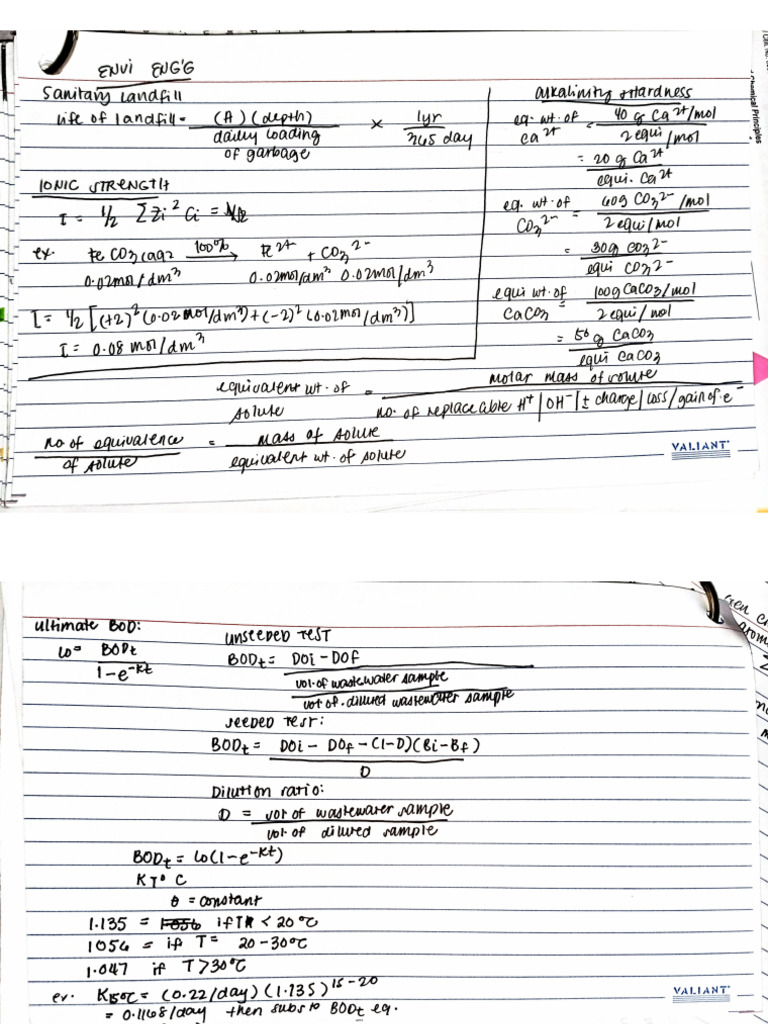 ENVI ENG'G
Sanitary Landfill
life of landfill = (A) (depth) / daily loading of garbage × 1yr / 365 day
IONIC STRENGTH
I = 1/2 ΣZi² Ci =
ex. FeCO3(aq) 100%→ Fe²⁺ + CO3²⁻
0.02mol/dm³ 0.02mol/dm³ 0.02mol/dm³
I = 1/2 [(+2)²(0.02mol/dm³)+(-2)²(0.02mol/dm³)]
I = 0.08 mol/dm³
Alkalinity & Hardness
eq. wt. of Ca²⁺ = 40 g Ca²⁺/mol / 2 equi/mol
= 20 g Ca²⁺ / equi. Ca²⁺
eq. wt. of CO3²⁻ = 60g CO3²⁻/mol / 2 equi/mol
= 30g CO3²⁻ / equi CO3²⁻
equi wt. of CaCO3 = 100g CaCO3/mol / 2 equi/mol
= 50 g CaCO3 / equi CaCO3
equivalent wt. of solute = molar mass of solute / no. of replaceable H⁺|OH⁻|± charge|loss/gain of e⁻
no. of equivalence of solute = mass of solute / equivalent wt. of solute
VALIANT
Chemical Principles
Ultimate BOD:
Lo = BODt / 1-e^-kt
UNSEEDED TEST
BODt = DOi - DOf / vol. of wastewater sample / vol. of diluted wastewater sample
SEEDED TEST:
BODt = DOi - DOf - (1-D)(Bi-Bf) / D
Dilution ratio:
D = vol of wastewater sample / vol. of diluted sample
BODt = Lo(1-e^-kt)
KT° C
θ = constant
1.135 = 1.056 if T < 20°C
1056 = if T = 20-30°C
1.047 if T>30°C
ex. K15°C = (0.22/day) (1.135)^15-20
= 0.1168/day then subs to BODt eq.
VALIANT